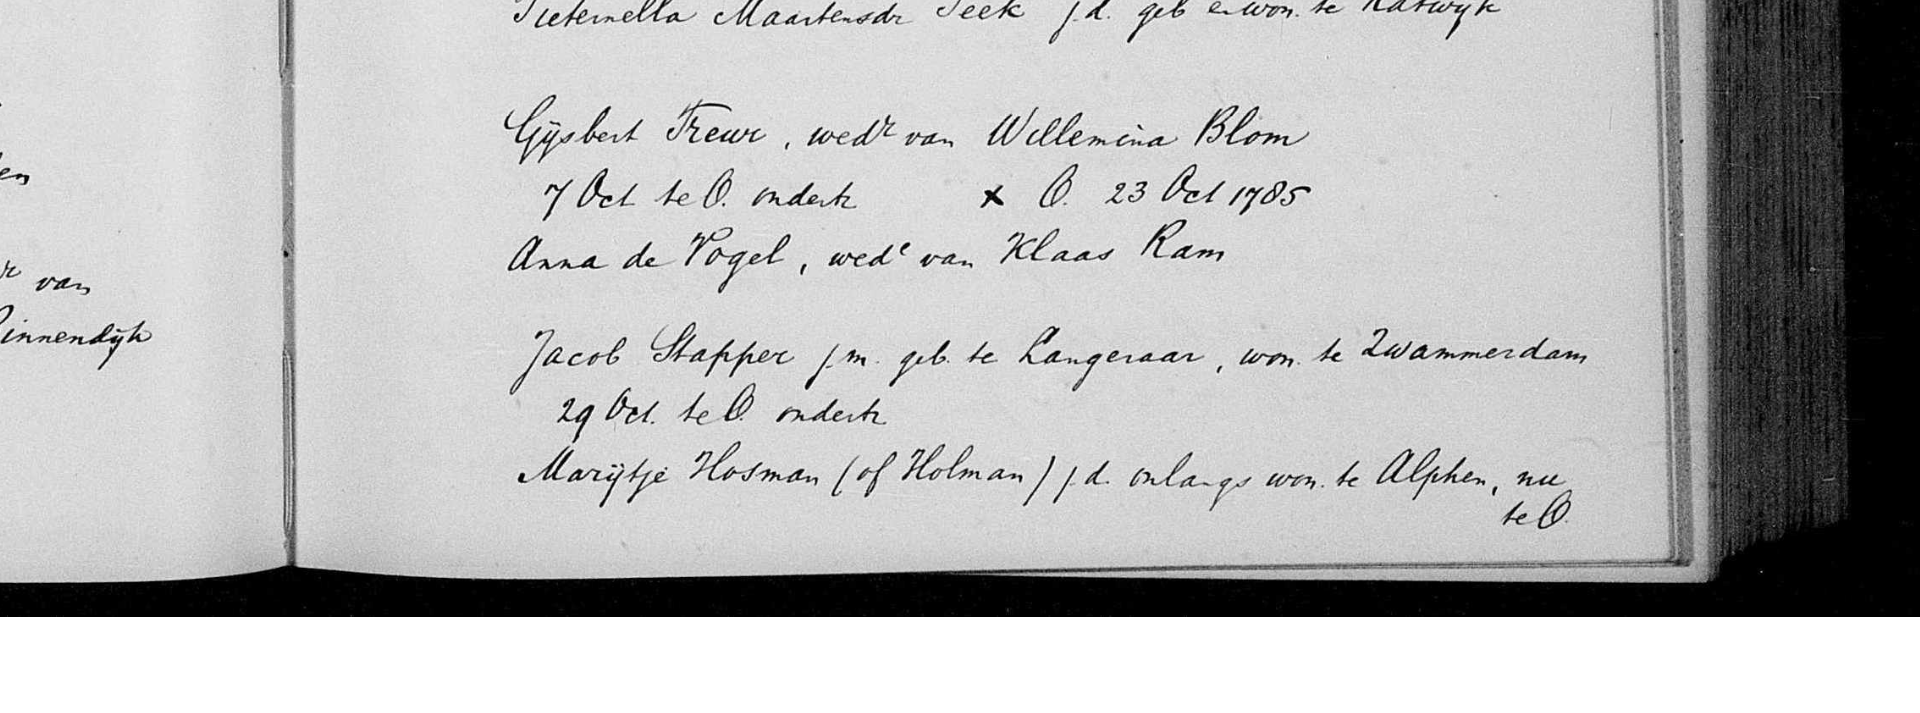 en
r van
innendijk
Pieternella Maartensdr j.d. geb en won. te Katwijk
Gijsbert Treur, wedr van Willemina Blom
7 Oct te O. ondertr x O. 23 Oct 1785
Anna de Vogel, wede van Klaas Ram
Jacob Stapper j.m. geb. te Langeraar, won. te Zwammerdam
29 Oct. te O. ondertr
Marijtje Hosman (of Holman) j.d. onlangs won. te Alphen, nu
te O.